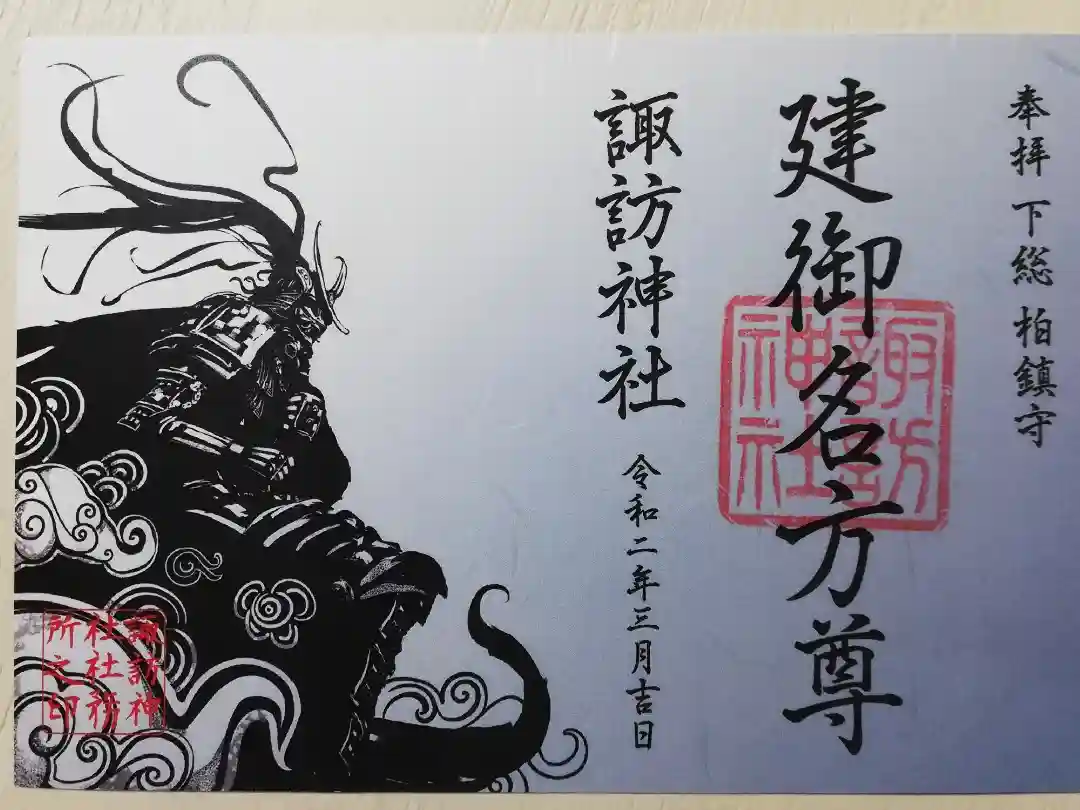 奉拝 下総 柏鎮守
建御名方尊
諏訪神社
諏訪神社
令和二年三月吉日
諏訪神
社社務
所之印